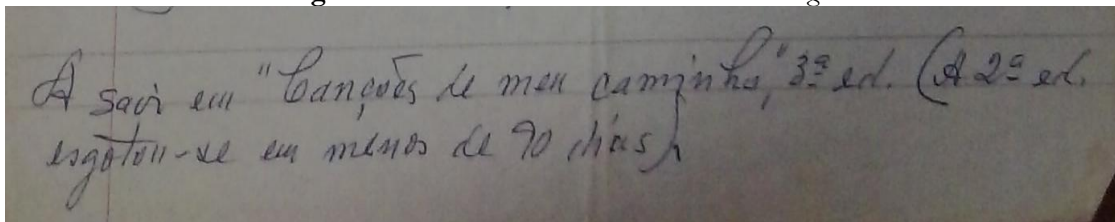 A sair em "Canções de meu caminho," 3ª ed. (A 2ª ed.
esgotou-se em menos de 90 dias)